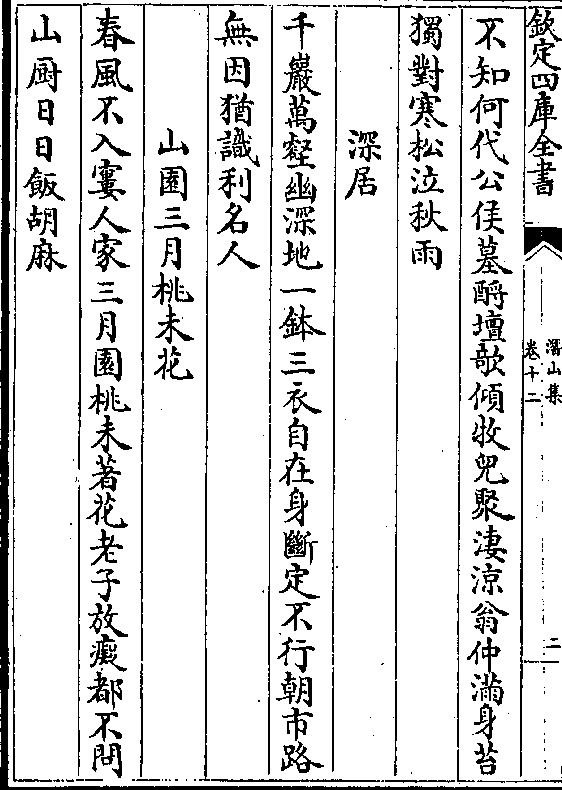 欽定四庫全書
潛山集
卷十二
二
不知何代公侯墓酹壇歌傾牧兒聚淒涼翁仲滿身苔
獨對寒松泣秋雨
深居
千巖萬壑幽深地一鉢三衣自在身斷定不行朝市路
無因猶識利名人
山園三月桃未花
春風不入寠人家三月園桃未著花老子放癡都不問
山厨日日飯胡麻